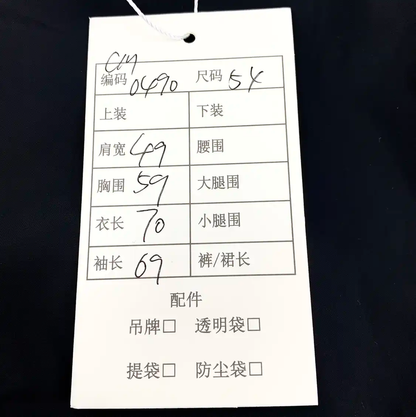 CM
编码 0490 尺码 54
上装 下装
肩宽 49 腰围
胸围 59 大腿围
衣长 70 小腿围
袖长 69 裤/裙长
配件
吊牌□ 透明袋□
提袋□ 防尘袋□